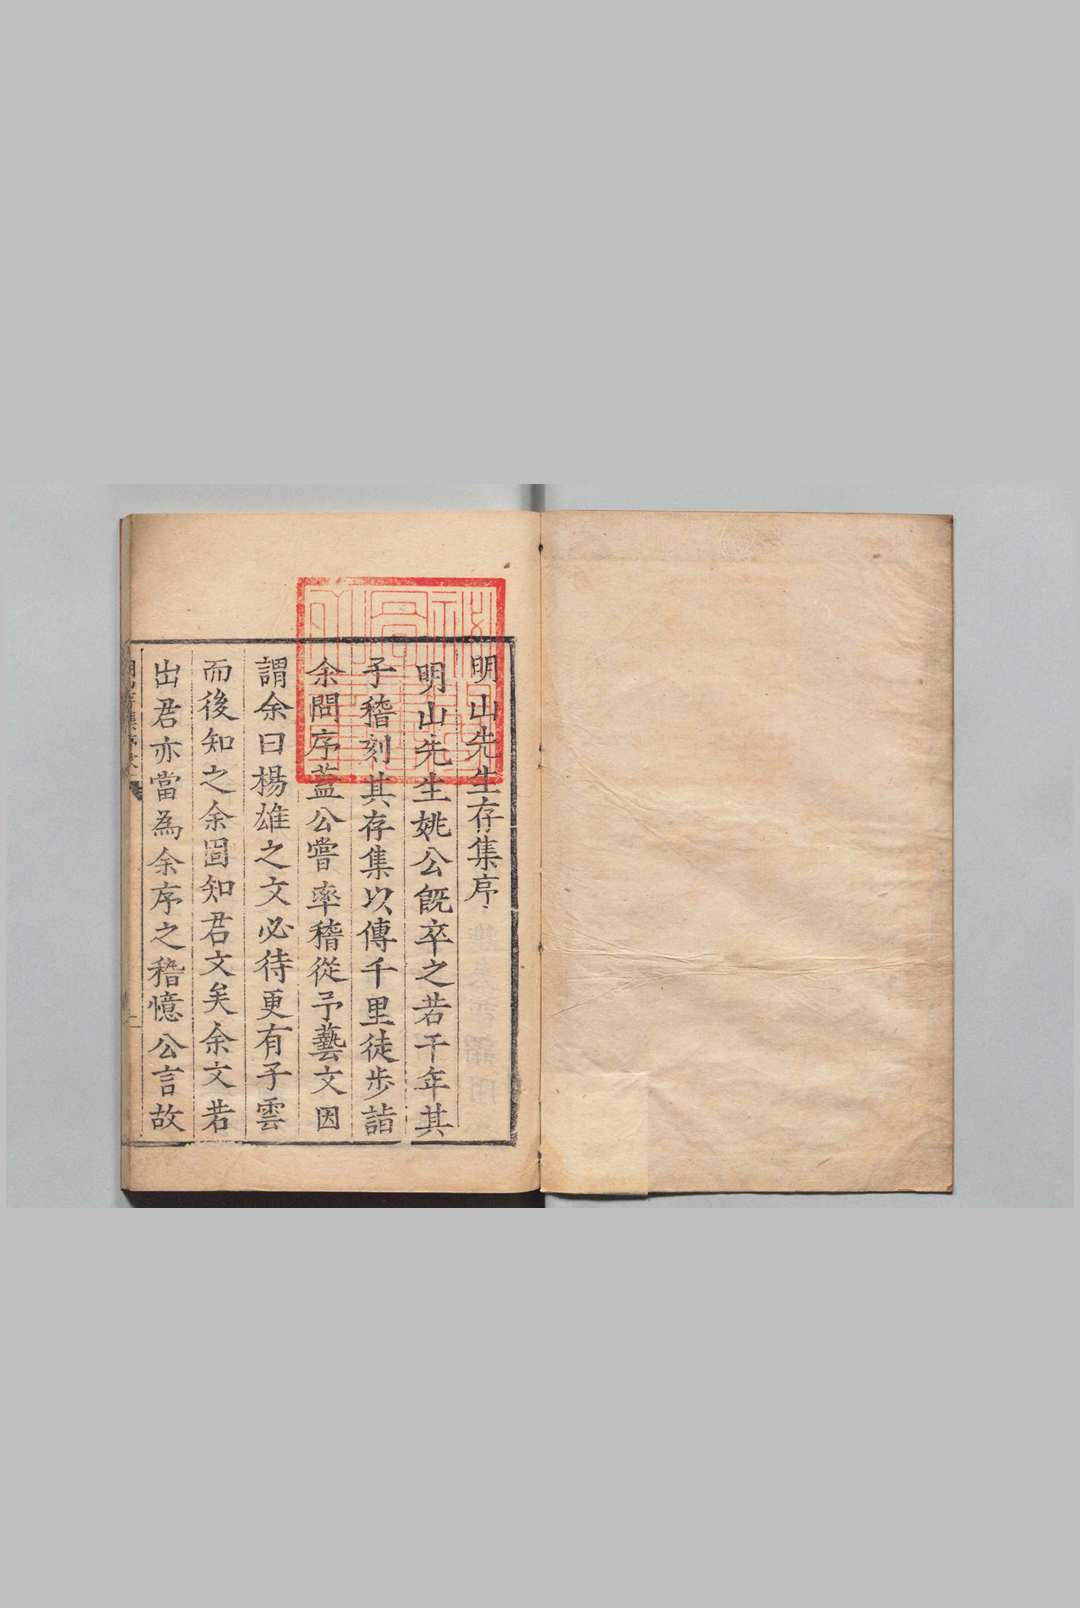 明山先生存集序
明山先生姚公旣卒之若干年其
子稽刻其存集以傳千里徒步詣
余問序蓋公嘗率稽從予藝文因
謂余曰楊雄之文必待更有子雲
而後知之余固知君文矣余文若
出君亦當為余序之稽憶公言故